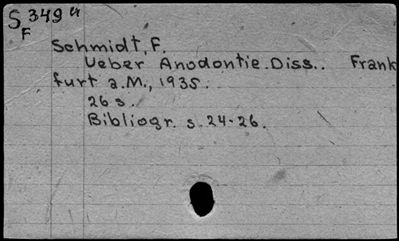 S 349 a
F
Schmidt, F.
Ueber Anodontie. Diss.. Frank
furt a.M., 1935.
26 s.
Bibliogr. s. 24-26.